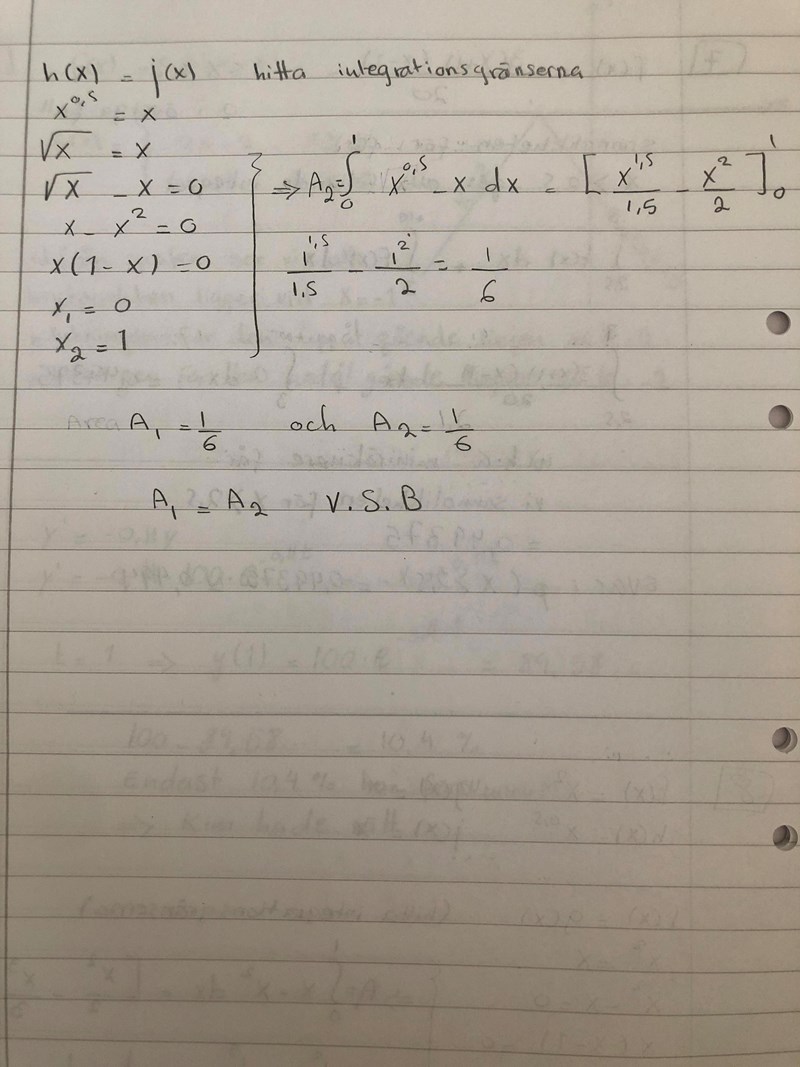 h(x) = j(x) hitta integrationsgränserna
x^0,5 = x
√x = x
√x - x = 0
x - x² = 0
x(1 - x) = 0
x₁ = 0
x₂ = 1
⇒ A₂ = ∫₀¹ x^0,5 - x dx = [x^1,5/1,5 - x²/2]₀¹
1^1,5/1,5 - 1²/2 = 1/6
Area A₁ = 1/6 och A₂ = 1/6
A₁ = A₂ V.S.B